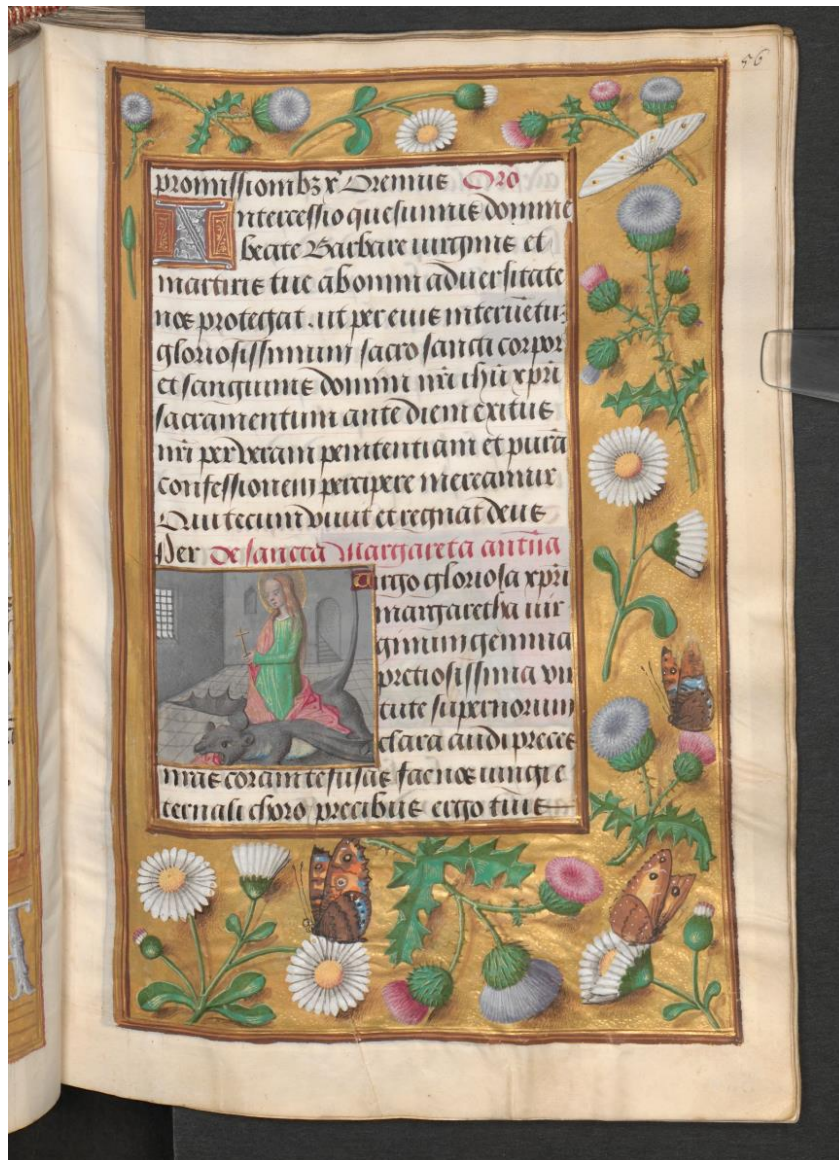 56
promissionibꝫ xp̃i Oremus Orõ
Intercessio quesumus domine
beate Barbare uirginis et
martiris tue ab omni aduersitate
nos protegat .ut per eius interuẽtuꝫ
gloriosissimum sacro sancti corpor
et sanguinis domini nr̃i ihũ xp̃i
sacramentum ante diem exitus
nr̃i per veram penitentiam et purã
confessionem percipere mereamur
Qui tecum viuit et regnat deus
Per De sancta Margareta antiña
Virgo gloriosa xp̃i
margaretha uir
ginum gemma
pretiosissima vir
tute supernorum
clara audi preces
nr̃as coram te fusas fac nos iungi e
ternali choro precibus ergo tuis